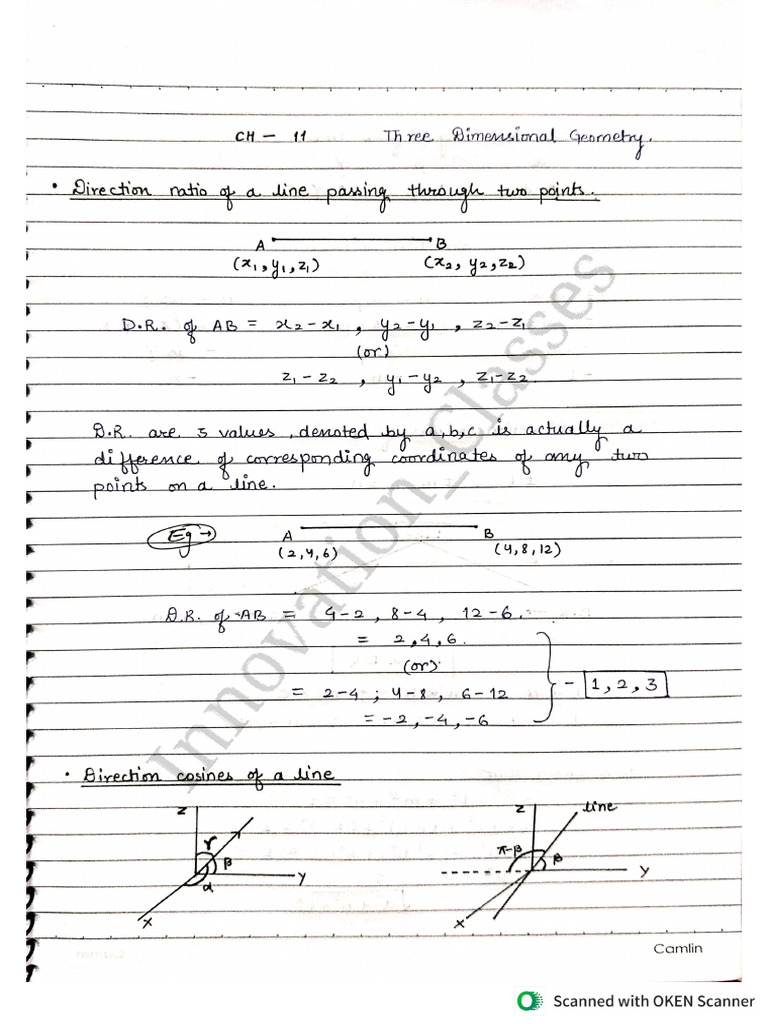 CH - 11 Three Dimensional Geometry.
• Direction ratio of a line passing through two points.
A B
(x1, y1, z1) (x2, y2, z2)
D.R. of AB = x2-x1 , y2-y1 , z2-z1
(or)
z1-z2 , y1-y2 , z1-z2.
D.R. are 3 values , denoted by a,b,c is actually a
difference of corresponding coordinates of any two
points on a line.
Eg →
A B
(2,4,6) (4,8,12)
D.R. of AB = 4-2 , 8-4 , 12-6.
= 2,4,6.
(or)
= 2-4 ; 4-8 , 6-12
= -2, -4, -6
- 1, 2, 3
• Direction cosines of a line
Z γ β α Y X
Z line π-β β Y X
Innovation_Classes
Camlin
Scanned with OKEN Scanner